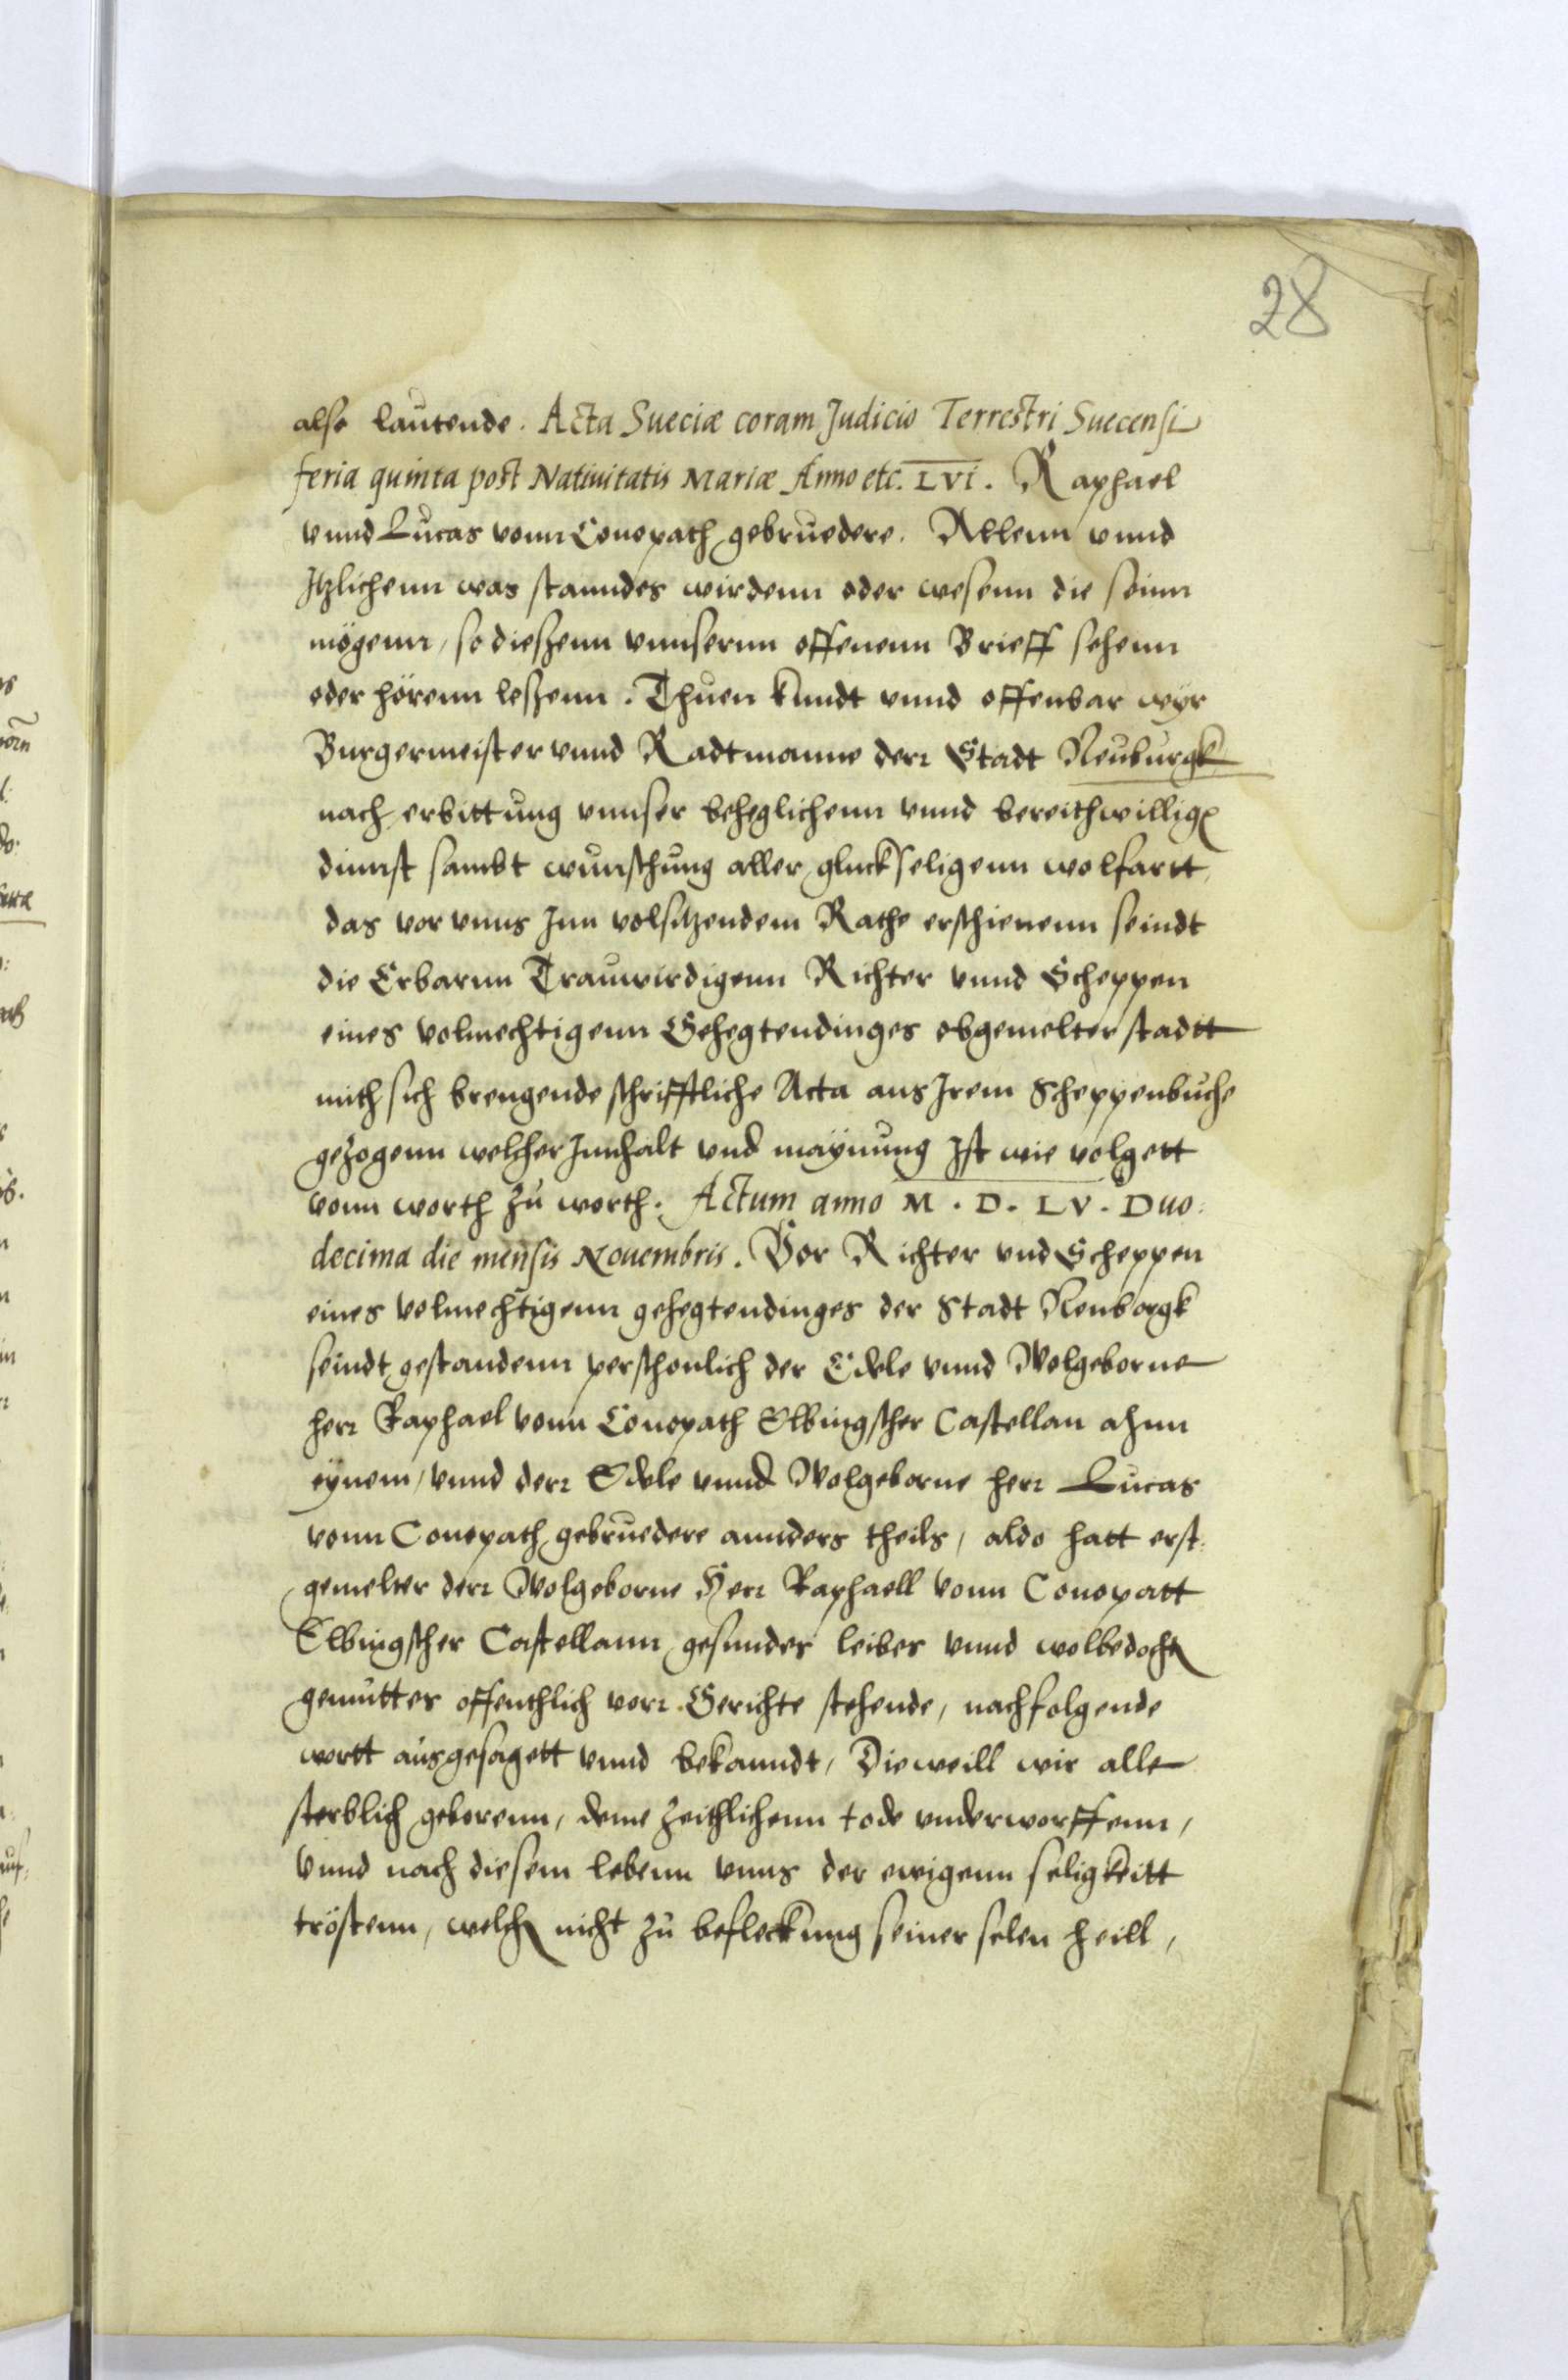 28
also lautende. Acta Sueciæ coram Judicio Terrestri Suecensi
feria quinta post Natiuitatis Mariæ Anno etc. LVI. Raphael
vnnd Lucas vonn Conopath gebruedere. Allenn vnnd
Jtzlichenn was standes wirdenn oder wesenn die seinn
mögenn, so dieszenn vnnsernn offenenn Brieff sehenn
oder hörenn leszenn. Thuen kundt vnnd offenbar wyr
Burgermeister vnnd Radtmanne derr Stadt Neuburgk
nach erbittung vnnser beheglichenn vnnd bereithwillig
dinnst sambt wunschung aller gluckseligenn wolfartt,
das vor vnns Jnn volsitzendem Rathe erschienenn seindt
die Erbarnn Trauwirdigenn Richter vnnd Scheppen
eines volmechtigenn Gehegtendinges obgemelter stadtt
mith sich brengende schrifftliche Acta aus Jrem Scheppenbuche
gezogenn welcher Jnnhalt vnd maynung Jst wie volgett
vonn worth zu worth. Actum anno M. D. LV. Duo:
decima die mensis Nouembris. Vor Richter vnd Scheppen
eines volmechtigenn gehegtendinges der Stadt Neuborgk
seindt gestandenn perschonlich der Edele vnnd Wolgeborne
herr Raphael vonn Conopath Elbingscher Castellan ahnn
eynem, vnnd derr Edele vnnd Wolgeborne herr Lucas
vonn Conopath gebruedere annders theils, aldo hatt erst:
gemelter derr Wolgeborne Herr Raphaell vonn Conopatt
Elbingscher Castellann gesundes leibes vnnd wolbedocht
gemuttes offenthlich vorr Gerichte stehende, nachfolgende
wortt ausgesagett vnnd bekanndt, Dieweill wir alle
sterblich geborenn, deme zeithlichenn tode vnderworffenn,
Vnnd nach diesem lebenn vnns der ewigenn seligkeitt
tröstenn, welch nicht zu befleckung seiner selen heill,